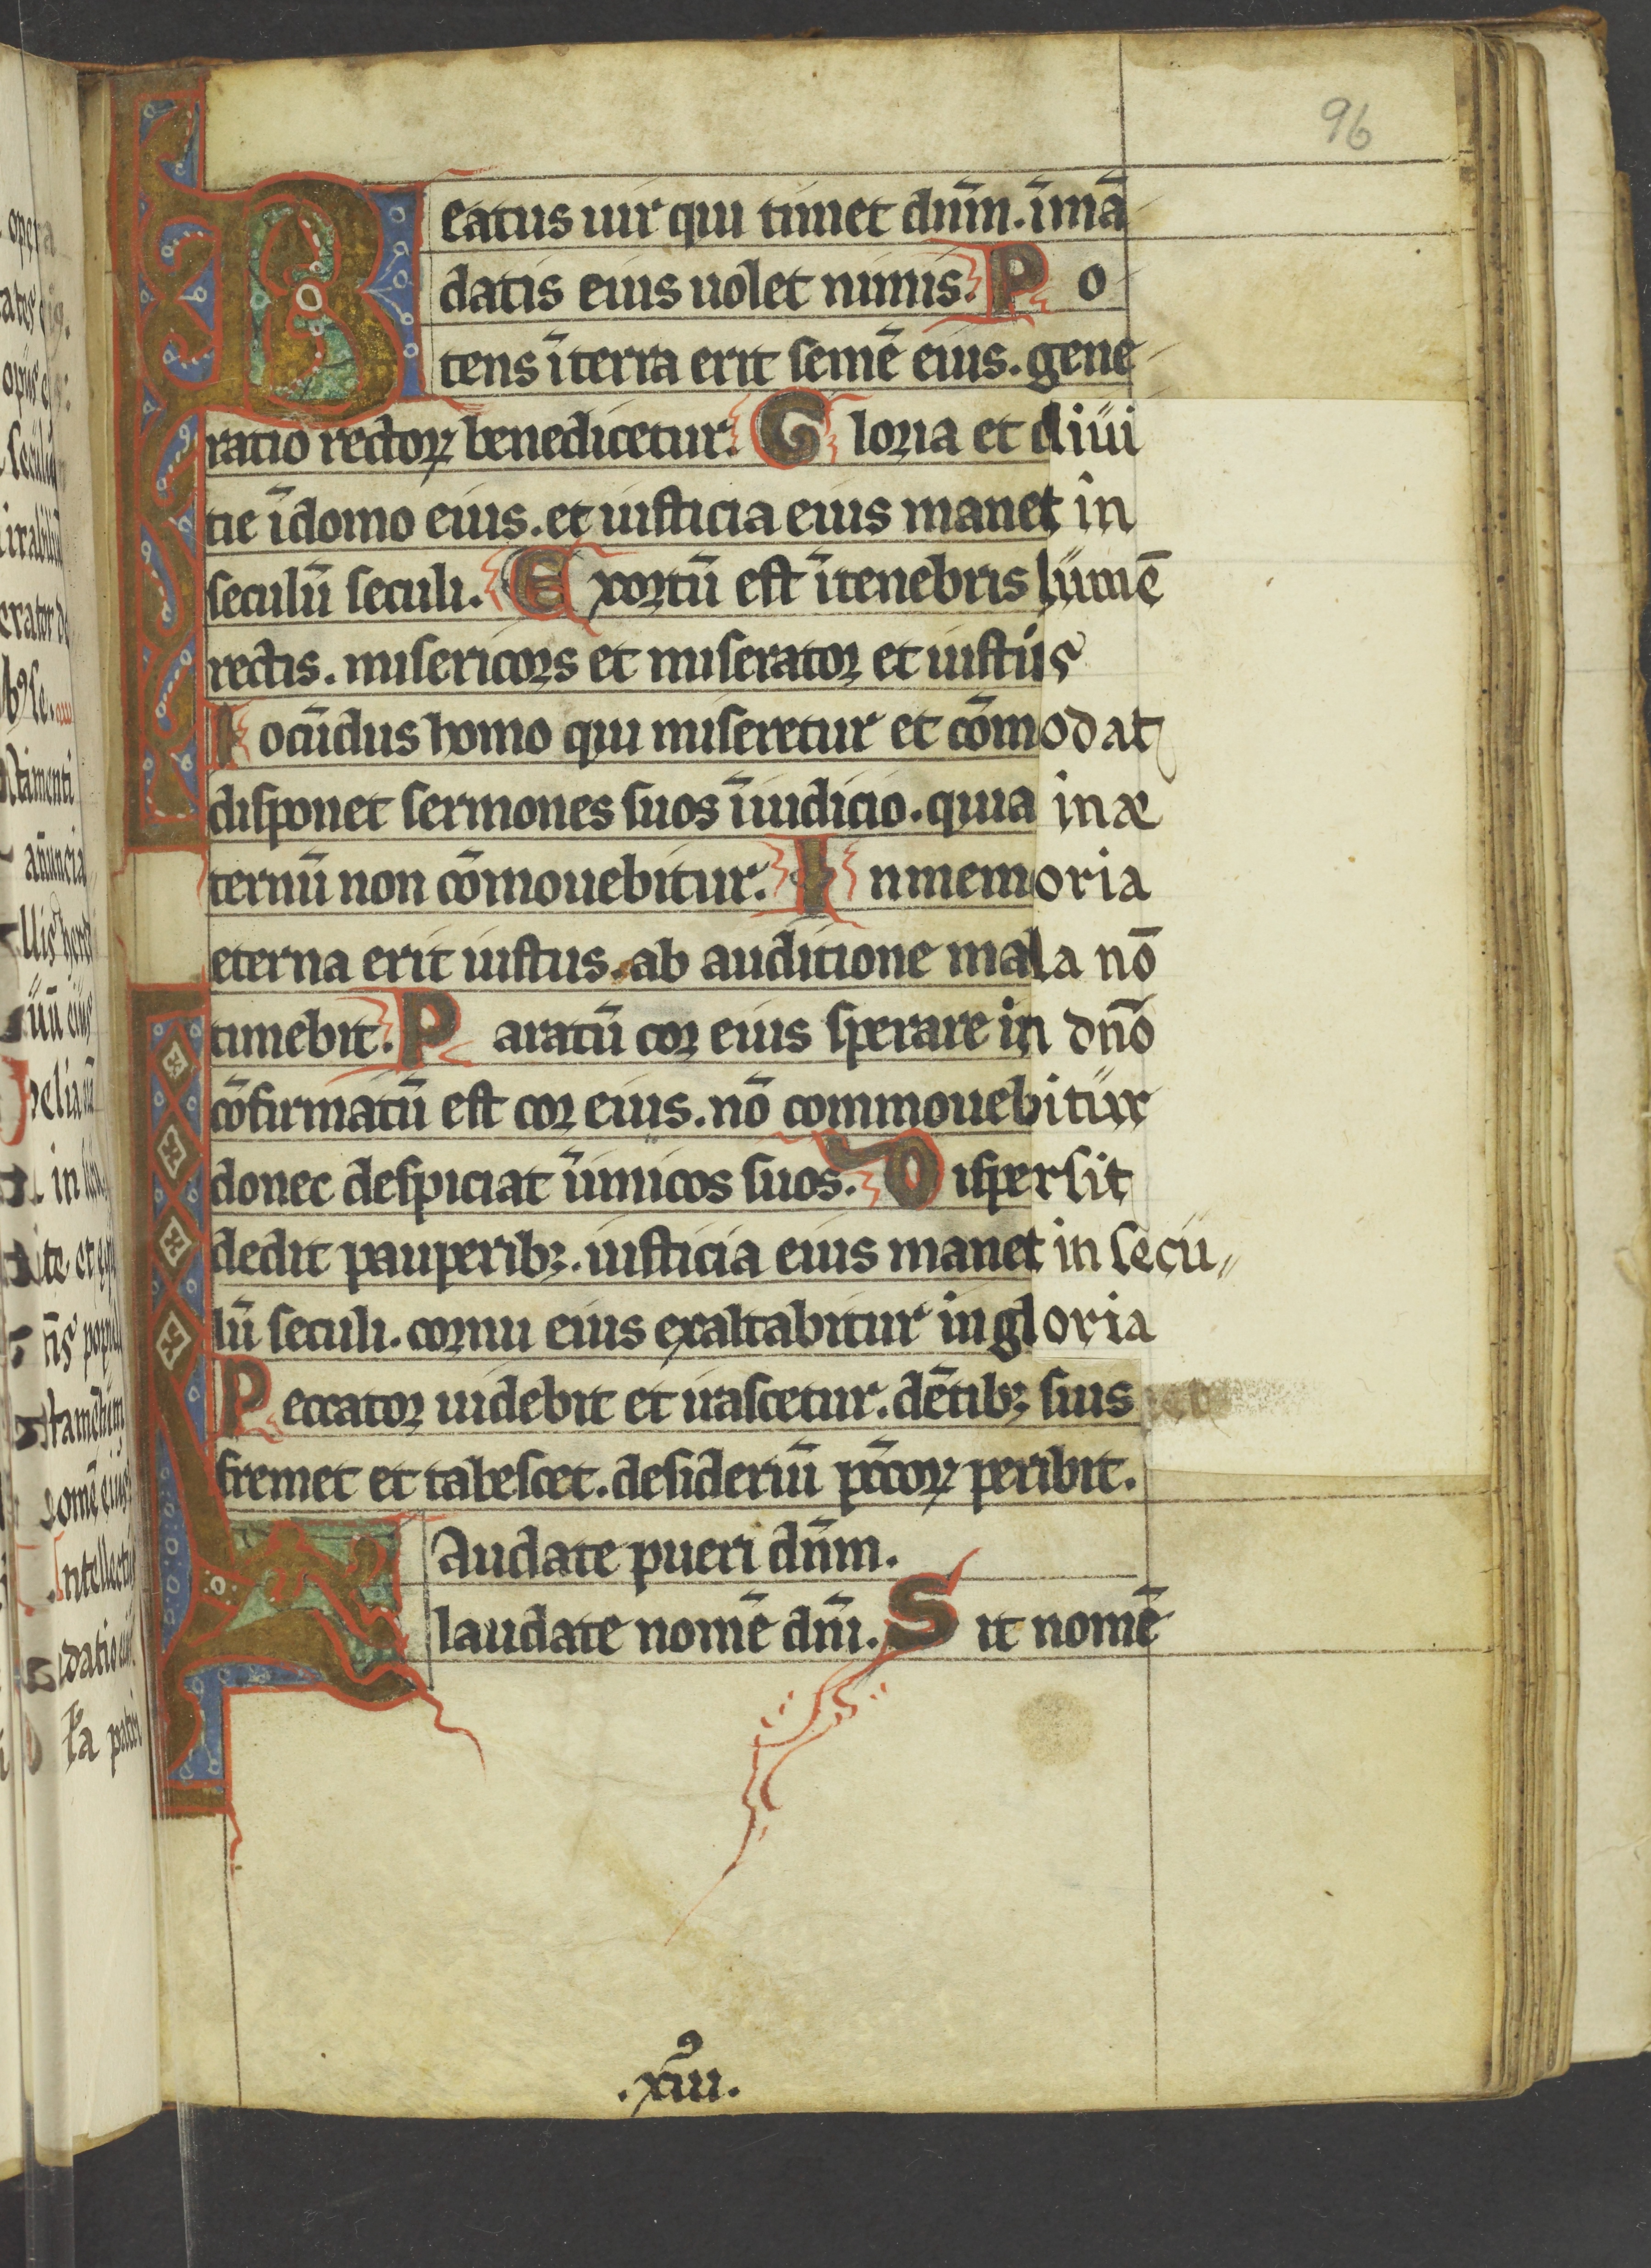 96
Beatus uir qui timet dn̄m. īmā
datis eius uolet nimis. P o
tens īterra erit semē eius. gene
ratio rectoꝝ benedicetur. Gloria et diui
tie īdomo eius. et iusticia eius manet in
seculū seculi. Exortū est ītenebris lumē
rectis. misericors et miserator et iustus
Iocūdus homo qui miseretur et cōmodat
disponet sermones suos īiudicio. quia in æ
ternū non cōmouebitur. Inmemoria
eterna erit iustus. ab auditione mala nō
timebit. Paratū cor eius sperare in dn̄o
cōfirmatū est cor eius. nō commouebitur
donec despiciat inimicos suos. Dispersit
dedit pauperibꝫ. iusticia eius manet in secu〃
lū seculi. cornu eius exaltabitur in gloria
Peccator uidebit et irascetur. dētibꝫ suis
fremet et tabescet. desideriū pc̄coꝝ peribit.
Laudate pueri dn̄m.
laudate nomē dn̄i. Sit nomē
.xiiiꝰ.